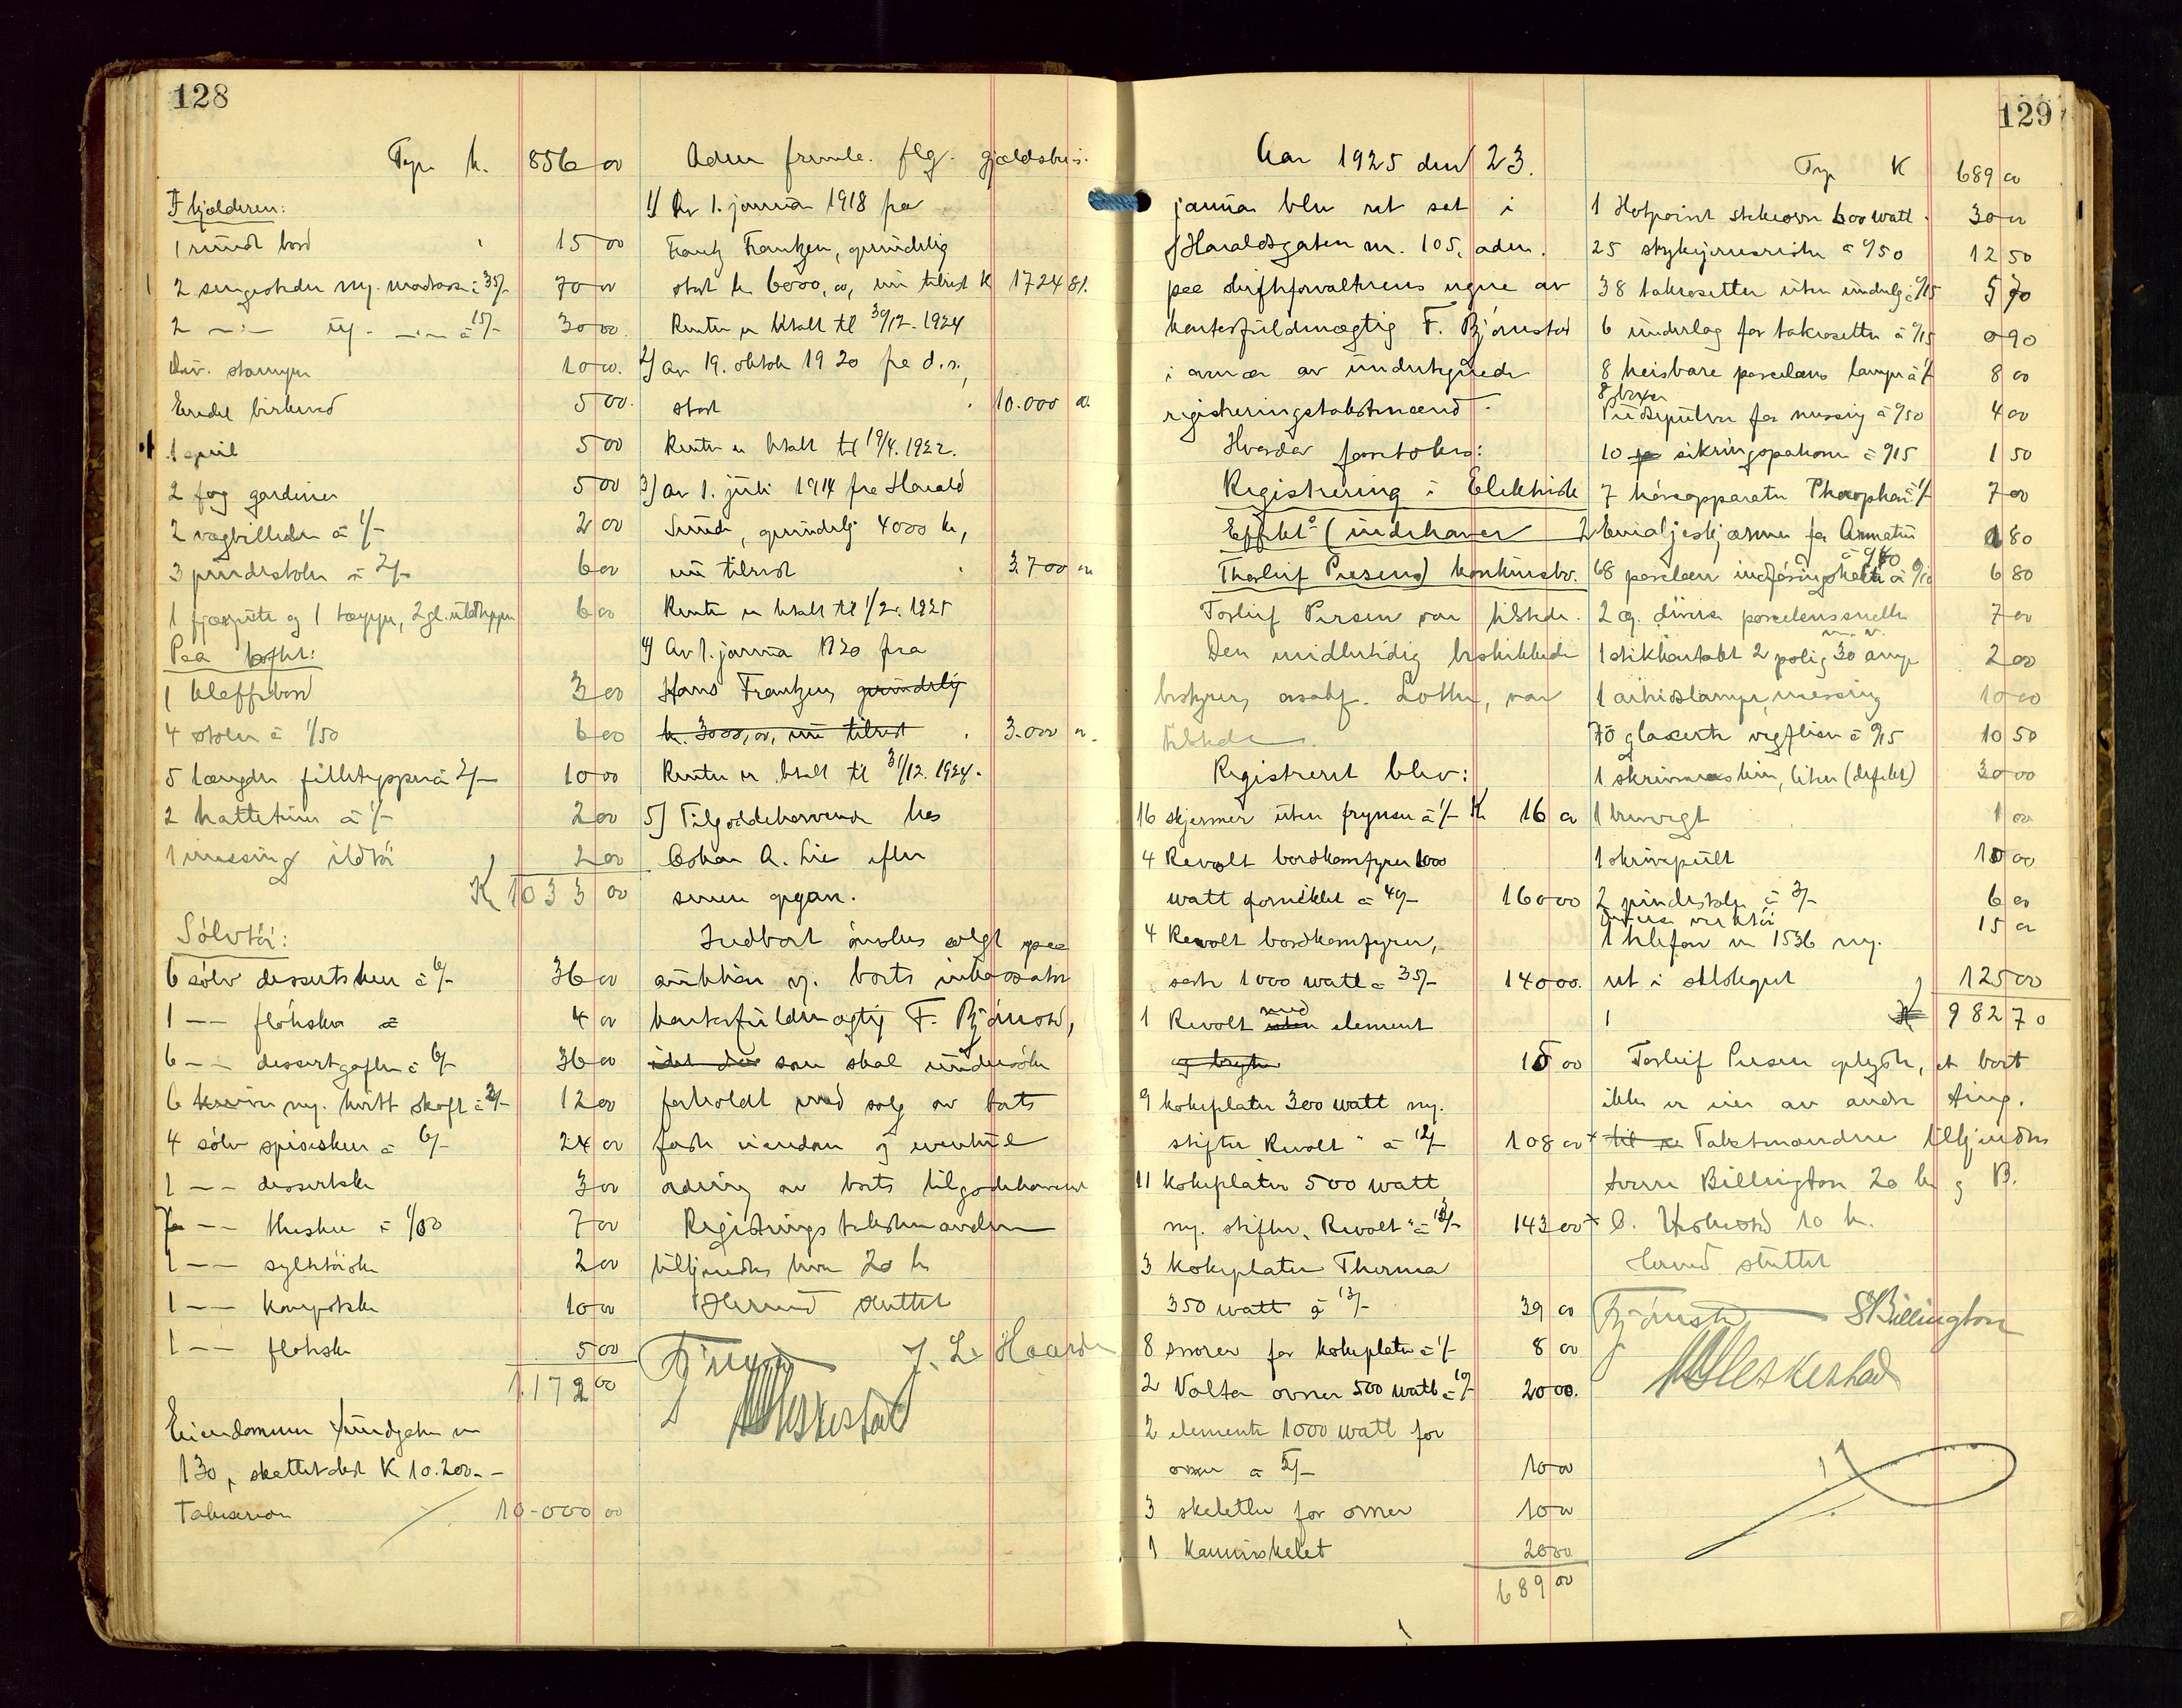 128
Trp. k. 856 00
I kjelderen:
1 rundt bord 15 00
2 sengesteder m. madrasser à 35/- 70 00
2 -"- à 15/- 30 00
Div. 10 00.
Endel birkeved 5 00.
1 speil 5 00
2 fag gardiner 5 00
2 vægbilleder à 1/- 2 00
3 pindestoler à 2/- 6 00
1 og 1 tæppe, 6 00
Paa loftet:
1 klaffebord 3 00
4 stoler à 1/50 6 00
5 længder filletepper à 2/- 10 00
2 à 1/- 2 00
1 messing ildtöi 2 00
K 1033 00
Sölvtöi:
6 sölv dessertskeer à 6/- 36 00
1 -- flöteske à 4 00
6 -- dessertgafler à 6/- 36 00
6 kniver m. hvitt skaft à 2/- 12 00
4 sölv spiseskeer à 6/- 24 00
1 -- dessertske 3 00
7 -- theskeer à 1/00 7 00
1 -- syltetöiske 2 00
1 -- kompotske 10 00
1 -- flöteske 5 00
1.172 00
Eiendommen Sundgaten nr
130, skattetakst K 10.200.-
Takseres 10-000 00
Aden fremla. flg. gjældsbrev.
1) Av 1. januar 1918 fra
Frantz Frantzen, oprindelig
stort kr 6000,00, nu tilrest K 1724 81.
Renter er betalt til 30/12. 1924
2) av 19. oktober 1920 fra d.s.,
stort 10.000 00.
Renter er betalt til 19/4. 1922.
3) Av 1. juli 1914 fra Harald
Sunde, oprindelig 4000 kr,
nu tilrest 3.700 00
Renter er betalt til 1/2. 1925
4) Av 1. januar 1920 fra
Hans Frantzen, oprindelig
k. 3000,00, nu tilrest 3.000 00.
Renter er betalt til 31/12. 1924.
5) Tilgodehavende hos
A. Lie efter
senere opgave.
Indbort önskes solgt paa
auktion v. borts inkassator
kontorfuldmægtig F. Björnstad,
som skal undersöke
forholdet med salg av borts
faste eiendom og eventuel
ordning av borts tilgodehavende
Registrerings takstmændene
tilkjendtes hver 20 kr
Herved sluttet
Björnstad J. L. Haarde
M Heskestad
129
Aar 1925 den 23.
januar blev ret sat i
Haraldsgaten nr. 105, adm.
paa skifteforvalterens vegne av
kontorfuldmægtig F. Björnstad
i nærvær av undertegnede
registreringstakstmænd.
Hvorda foretokes:
Registrering i Elektrisk
Effekt (indehaver
Thorleif Persen) konkursbo.
Torleif Persen var tilstede.
Den midlertidig beskikkede
bestyrer, ovsakf. Lothe, var
tilstede.
Registreret blev:
16 skjermer uten frynser à 1/- K 16 00
4 Revolt bordkomfyrer 1000
watt forniklet à 40/- 160 00
4 Revolt bordkomfyrer,
sorte 1000 watt à 35/- 140 00.
1 Revolt med element
15 00
9 kokeplater 300 watt m.
stifter "Revolt" à 12/- 108 00
11 kokeplater 500 watt
m. stifter "Revolt" à 13/- 143 00
3 kokeplater Therma
350 watt à 13/- 39 00
8 snorer for kokeplater à 1/- 8 00
2 Volta ovner 500 watt à 10/- 20 00.
2 elementer 1000 watt for
ovner à 5/- 10 00
3 skeletter for ovner 10 00
1 kaminskelet 20 00
689 00
Trp K 689 00
1 Hotpoint stekeovn 600 watt 30 00
25 strykejernsrister à 0/50 12 50
38 takrosetter uten underlag à 0/15 5 70
6 underlag for takrosetter à 0/15 0 90
8 heisbare porcelæns lamper à 1/- 8 00
8 for messing à 0/50 4 00
10 sikringspatroner à 0/15 1 50
7 höreapparater à 1/- 7 00
2 Emaljeskjærmer for Armatur 1 80
68 porcelæn à 0/10 6 80
2 æ. diverse porcelenssneller 7 00
1 stikkontakt 2 polig 30 amp 2 00
1 arbeidslampe, messing 10 00
70 glaserte vegfliser à 0/15 10 50
1 skrivemaskin, liten (defekt) 30 00
1 brevvegt 1 00
1 skrivepult 10 00
2 pindestoler à 3/- 6 00
Diverse verktöi 15 00
1 telefon nr 1536 m.
ret i selskapet 125 00
K 982 70
Torleif Persen oplyste, at bort
ikke er eier av andre ting.
Takstmændene tilkjendtes
Sverre Billington 20 kr og B.
Heskestad 10 kr.
Herved sluttet
Björnstad S Billington
M Heskestad